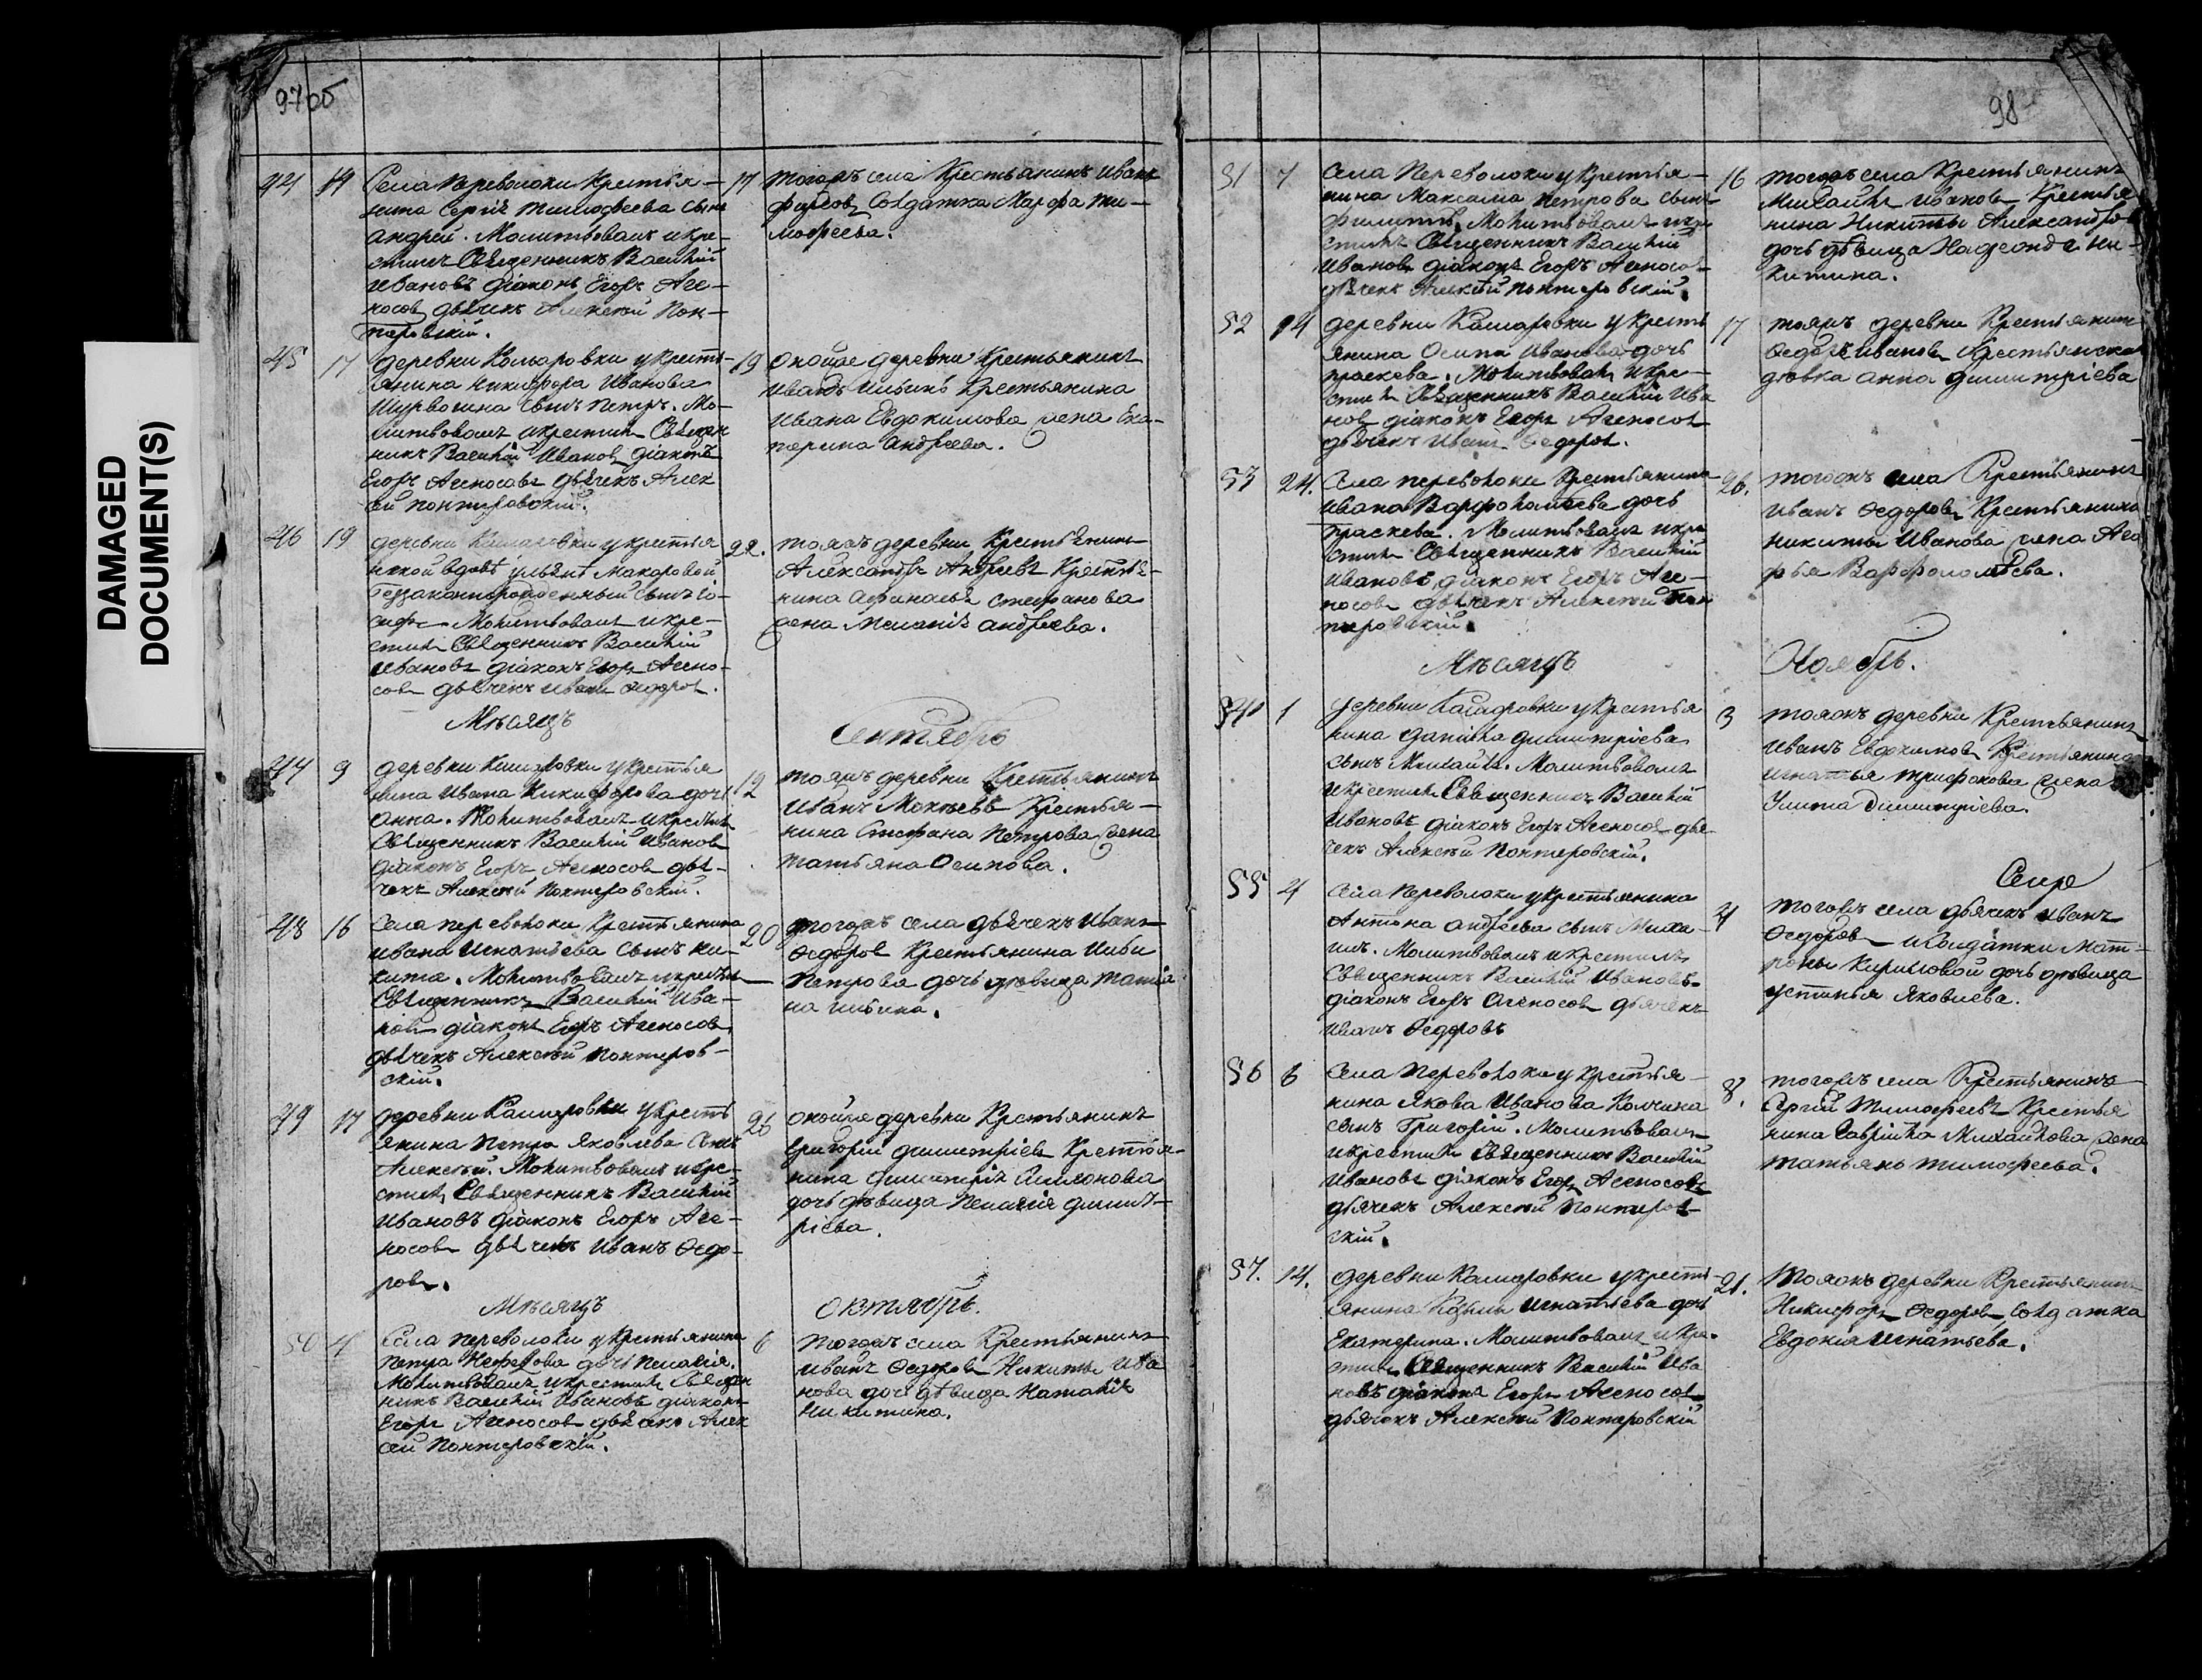 DAMAGED
DOCUMENT(S)
97об
44 14 Села Переволоки Крестья-
нина Сергія Тимофеева сынъ
Андрей. Молитвовалъ и кре-
стилъ Священникъ Василій
Ивановъ діаконъ Егоръ Аге-
носовъ дьячекъ Алексей Пон-
теровскій.
17 тогожъ села Крестьянинъ Иванъ
Фирсовъ Солдатка Марфа Ти-
мофеева.
45 17 деревни Комаровки у кресть-
янина Никифора Иванова
сынъ Петръ. Мо-
литвовалъ и крестилъ Священ
никъ Василій Ивановъ діаконъ
Егоръ Агеносовъ дьячекъ Алек
ей Понтеровскій.
19 оной же деревни Крестьянинъ
Иванъ Ильинъ Крестьянина
Ивана Евдокимова жена Ека-
терина Андреева.
46 19 деревни Комаровки у крестья
нской вдовы Ульяны Макаровой
беззаконнорожденный сынъ Іо-
сифъ Молитвовалъ и кре-
стилъ Священникъ Василій
Ивановъ діаконъ Егоръ Агено-
совъ дьячекъ Иванъ Федоровъ.
22. тояжъ деревни Крестьянинъ
Александръ Андреевъ Крестья-
нина Афанасья Стефанова
жена Меланія Андреева.
Месяцъ Сентябрь
47 9 деревни Комаровки у крестья
нина Ивана Никифорова дочь
Анна. Молитвовалъ и крестилъ
Священникъ Василій Ивановъ
діаконъ Егоръ Агеносовъ дья-
чекъ Алексей Понтеровскій.
12 тояжъ деревни Крестьянинъ
Иванъ Мокеевъ Крестья-
нина Стефана Петрова жена
Татьяна Осипова.
48 16 Села Переволоки Крестьянина
Ивана Игнатьева сынъ Ни-
кита. Молитвовалъ и крестилъ
Священникъ Василій Ива-
новъ діаконъ Егоръ Агеносовъ
дьячекъ Алексей Понтеров-
скій.
20 тогожъ села дьячекъ Иванъ
Федоровъ Крестьянина Ильи
Петрова дочь девица Татья
на Ильина.
49 17 деревни Комаровки у кресть
янина Петра Яковлева сынъ
Алексей. Молитвовалъ и кре-
стилъ Священникъ Василій
Ивановъ діаконъ Егоръ Аге-
носовъ дьячекъ Иванъ Федо-
ровъ.
оной же деревни Крестьянинъ
Григорій Димитріевъ Крестья-
нина Димитрія Симонова
дочь девица Пелагія Димит-
ріева.
Месяцъ октябрь.
50 4 Села Переволоки у Крестьянина
Петра Нефедова дочь Пелагія.
Молитвовалъ и крестилъ Священ
никъ Василій Ивановъ діаконъ
Егоръ Агеносовъ дьячекъ Алек
сей Понтеровскій.
6 тогожъ села Крестьянинъ
Иванъ Федоровъ Никиты Ива
нова дочь девица Наталія
Никитина.
98
51 7 Села Переволоки у Крестья-
нина Максима Петрова сынъ
Филиппъ. Молитвовалъ и кре
стилъ Священникъ Василій
Ивановъ діаконъ Егоръ Агеносо-
дьячекъ Алексей Понтеровскій.
16 тогожъ села Крестьянинъ
Михайла Ивановъ Крестья
нина Никиты Александров
дочь девица Ни-
китина.
52 14 деревни Комаровки у кресть
янина Осипа Иванова дочь
Праскева. Молитвовалъ и кре-
стилъ Священникъ Василій Ива
новъ діаконъ Егоръ Агеносов
дьячекъ Иванъ Федоров.
17 тояжъ деревни Крестьянин
Федоръ Ивановъ Крестьянская
девка Анна Димитріева
53 24. Села Переволоки Крестьянина
Ивана Варфоломеева дочь
Праскева. Молитвовалъ и кре
стилъ Священникъ Василій
Ивановъ діаконъ Егоръ Аге-
носовъ дьячекъ Алексей Пон
теровскій.
26. тогожъ села Крестьянинъ
Иванъ Федоровъ Крестьянина
Никиты Иванова жена Ага
фья Варфоломеева.
Месяцъ Ноябрь.
54 1 деревни Комаровки у Крестья
нина Данила Димитріева
сынъ Михаилъ. Молитвовалъ
и крестилъ Священникъ Василій
Ивановъ діаконъ Егоръ Агеносов дья-
чекъ Алексей Понтеровскій.
3 тояжъ деревни Крестьянинъ
Иванъ Евдокимовъ Крестьянина
Игнатья Трифонова жена
Улита Димитріева.
55 4 Села Переволоки у крестьянина
Антона Андреева сынъ Миха-
илъ. Молитвовалъ и крестилъ
Священникъ Василій Ивановъ
діаконъ Егоръ Агеносовъ дьячекъ
Иванъ Федоровъ
4 тогожъ села дьячекъ Иванъ
Федоровъ и Солдатки Мат-
роны Кириловой дочь девица
Устинья Яковлева.
56 6 Села Переволоки у Крестья-
нина Якова Иванова Колчина
сынъ Григорій. Молитвовалъ
и крестилъ Священникъ Василій
Ивановъ діаконъ Егоръ Агеносовъ
дьячекъ Алексей Понтеров-
скій.
8. тогожъ села Крестьянинъ
Сергій Тимофеевъ Крестья
нина Гаврійла Михайлова жена
Татьяна Тимофеева.
57. 14. деревни Комаровки у кресть-
янина Козмы Игнатьева дочь
Екатерина. Молитвовалъ и кре-
стилъ Священникъ Василій Ива
новъ діаконъ Егоръ Агеносов
дьячекъ Алексей Понтеровскій
21. тояжъ деревни Крестьянинъ
Никифоръ Федоровъ Солдатка
Евдокія Игнатьева.